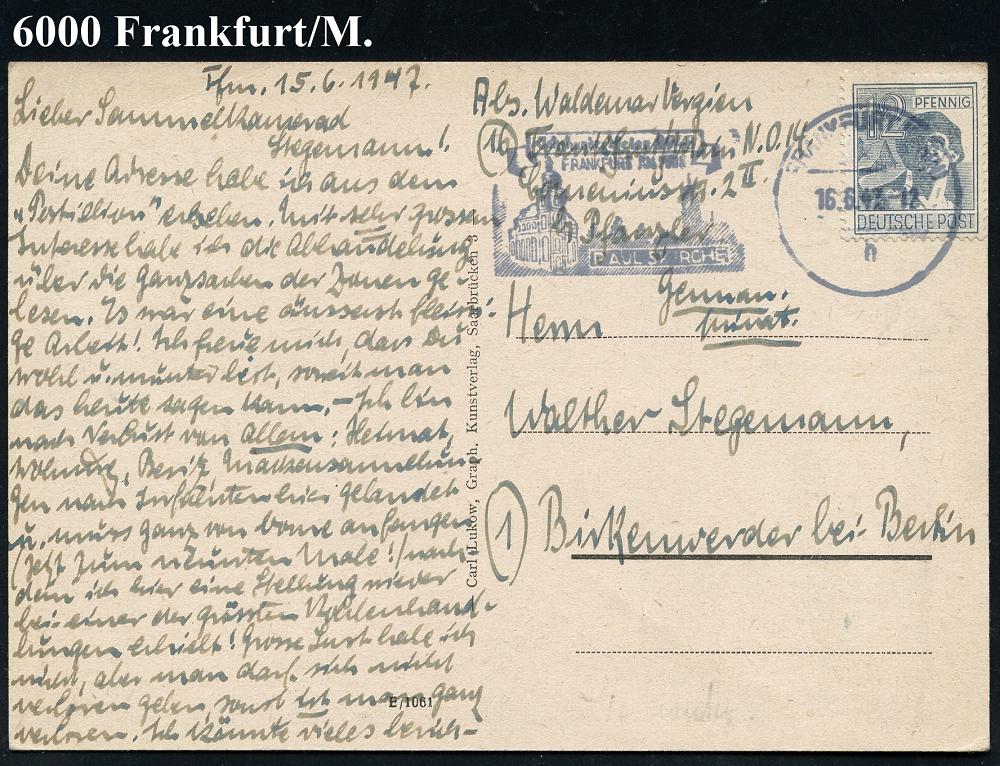 6000 Frankfurt/M.
Ffm. 15.6.1947.
Lieber Sammelkamerad
Stegemann!
Deine Adresse habe ich aus dem
"Postillion" ersehen. Mit sehr grossem
Interesse habe ich die Abhandelung
über die Ganzsachen der Zonen ge-
lesen. Es war eine äusserst fleissi-
ge Arbeit! Ich freue mich, dass Du
wohl u. munter bist, soweit man
das heute sagen kann. – Ich bin
nach Verlust von Allem: Heimat,
Wohnung, Besitz, Markensammelun-
gen nach hier gelandet
u. muss ganz von vorne anfangen
(jetzt zum neunten Male!) nach-
dem ich hier eine Stellung wieder
bei einer der grössten
lungen erhielt! Grosse Lust habe ich
nicht, aber man darf sich nicht
verloren geben, sonst ist man ganz
verloren. Ich könnte vieles berich-
E/1061
Carl Lukow, Graph. Kunstverlag, Saarbrücken 3
Abs. Waldemar Vergien
(16) Frankfurt N.O.14
2 II.
b/ Pfanzler
FRANKFURT AM MAIN
PAULSKIRCHE
12 PFENNIG
DEUTSCHE POST
FRANKFURT
16.6.47. 12
h
German.
Herrn
Walther Stegemann,
(1) Birkenwerder bei Berlin